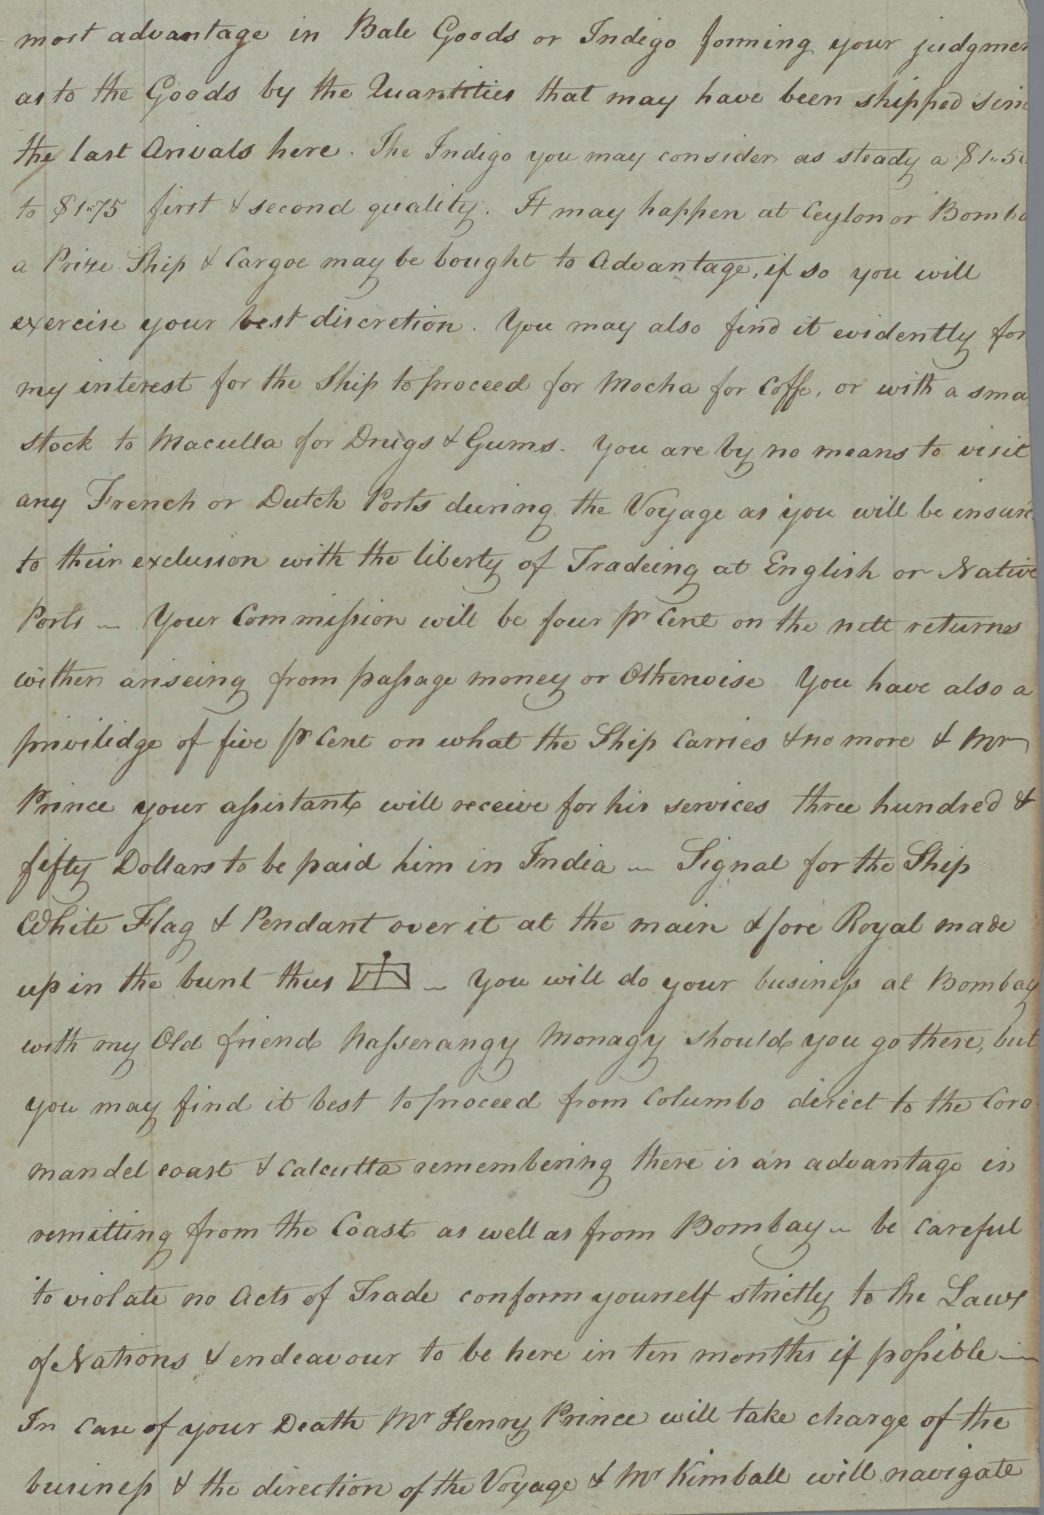 most advantage in Bale Goods or Indigo forming your judgmen
as to the Goods by the Quantities that may have been shipped sinc
the last Arivals here. The Indigo you may consider as steady a $1.50
to $1.75 first & second quality. It may happen at Ceylon or Bomba
a Prize Ship & Cargoe may be bought to Advantage, if so you will
exercise your best discretion. You may also find it evidently for
my interest for the Ship to proceed for Mocha for Coffe, or with a sma
stock to Maculla for Drugs & Gums. You are by no means to visit
any French or Dutch Ports during the Voyage as you will be insure
to their exclusion with the liberty of Tradeing at English or Native
Ports — Your Commission will be four pr Cent on the nett returns
wither ariseing from passage money or Otherwise You have also a
privilidge of five pr Cent on what the Ship Carries & no more & Mr
Prince your assistant will receive for his services three hundred &
fifty Dollars to be paid him in India — Signal for the Ship
White Flag & Pendant over it at the main & fore Royal made
up in the bunt thus — You will do your business at Bombay
with my Old friend Nasserangy Monagy should you go there, but
you may find it best to proceed from Columbo direct to the Coro
mandel coast & Calcutta remembering there is an advantage in
remitting from the Coast as well as from Bombay — be careful
to violate no Acts of Trade conform yourself strictly to the Laws
of Nations & endeavour to be here in ten months if possible —
In case of your Death Mr Henry Prince will take charge of the
business & the direction of the Voyage & Mr Kimball will navigate